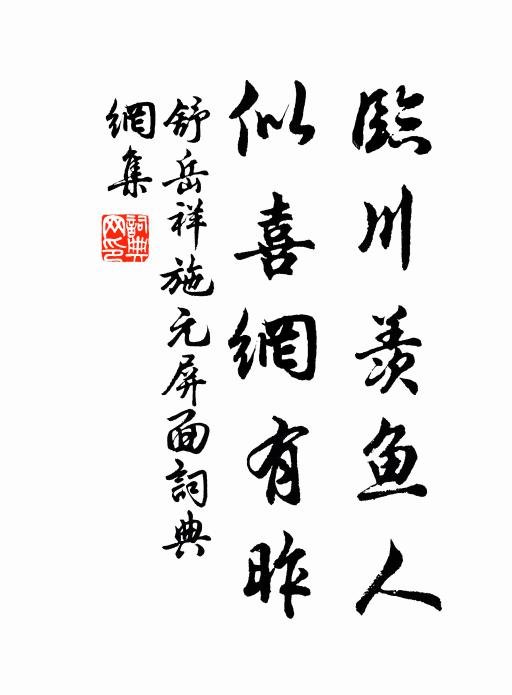 臨川羨鱼人
似喜網有昨
舒岳祥施元屏面詞典
網集
詞典網印